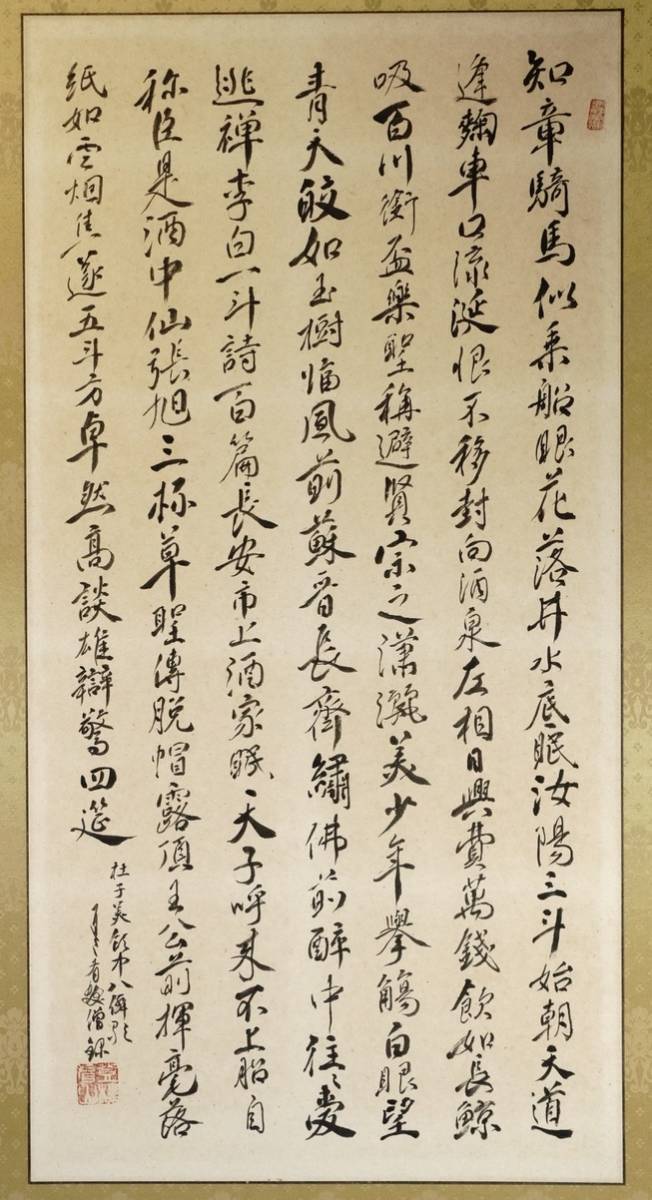 知章騎馬似乘船眼花落井水底眠汝陽三斗始朝天道
逢麴車口流涎恨不移封向酒泉左相日興費萬錢飲如長鯨
吸百川銜盃樂聖稱避賢宗之瀟灑美少年舉觴白眼望
青天皎如玉樹臨風前蘇晋長齋繡佛前醉中往〻愛
逃禅李白一斗詩百篇長安市上酒家眠天子呼来不上船自
称臣是酒中仙張旭三杯草聖傳脱帽露頂王公前揮毫落
紙如雲烟焦遂五斗方卓然高談雄辯驚四筵
杜子美飲中八僊歌
僧録